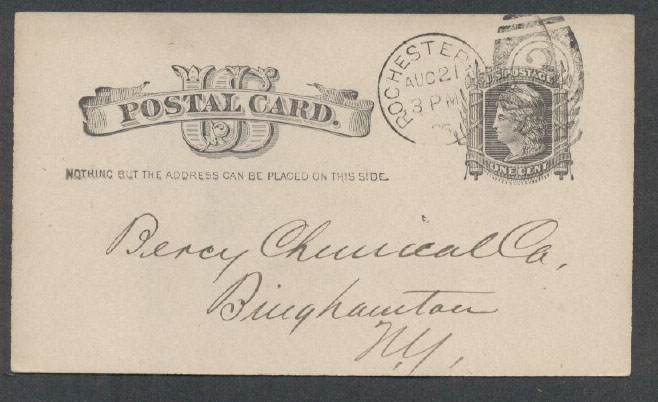 US
POSTAL CARD.
NOTHING BUT THE ADDRESS CAN BE PLACED ON THIS SIDE.
ROCHESTER
AUG 21
3 PM
U.S. POSTAGE
ONE CENT
Bercy Chemical Co,
Binghamton
N.Y.